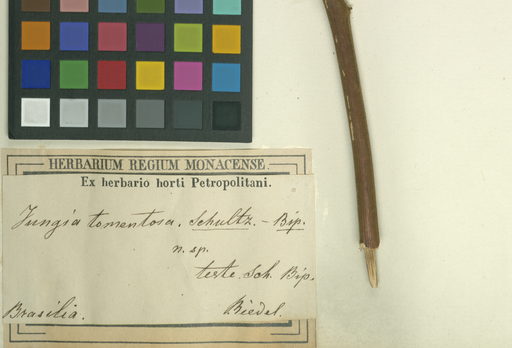 HERBARIUM REGIUM MONACENSE.
Ex herbario horti Petropolitani.
Jungia tomentosa. Schultz. - Bip.
n. sp.
teste Sch. Bip.
Brasilia. Riedel.